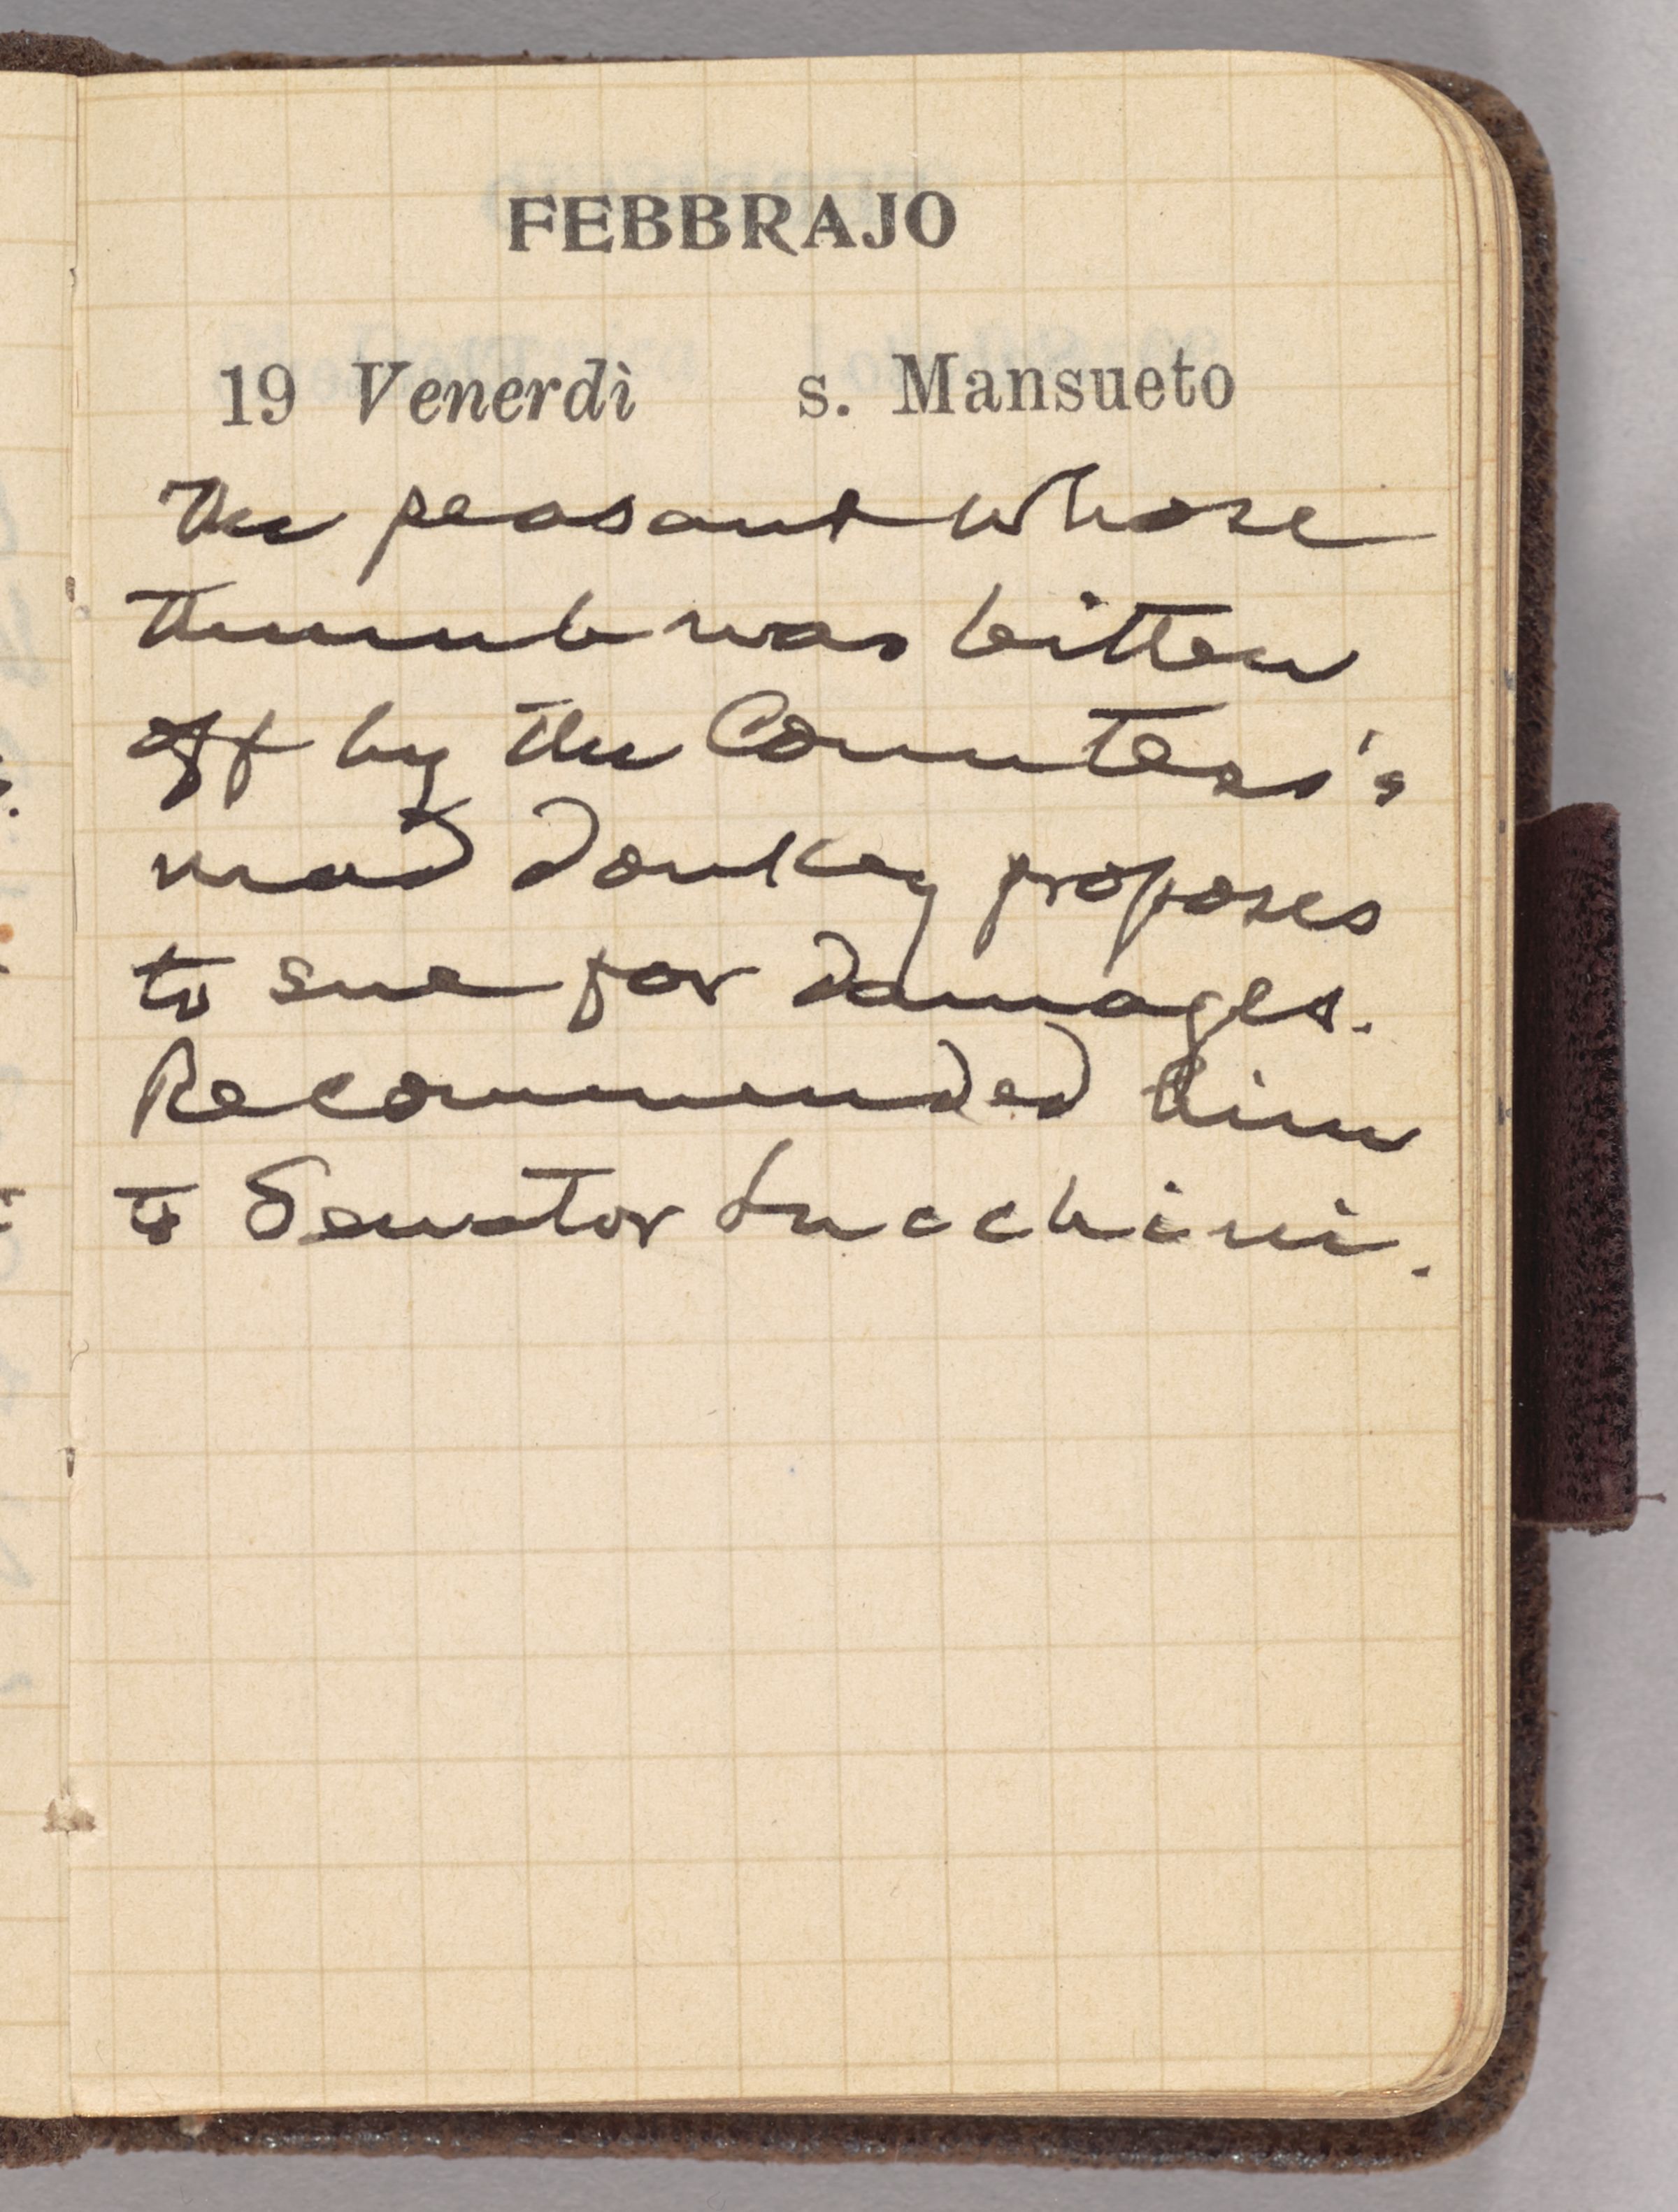 FEBBRAJO
19 Venerdì s. Mansueto
The peasant whose
thumb was bitten
off by the Countess's
mad donkey proposes
to sue for damages.
Recommended him
to Senator Lucchini.